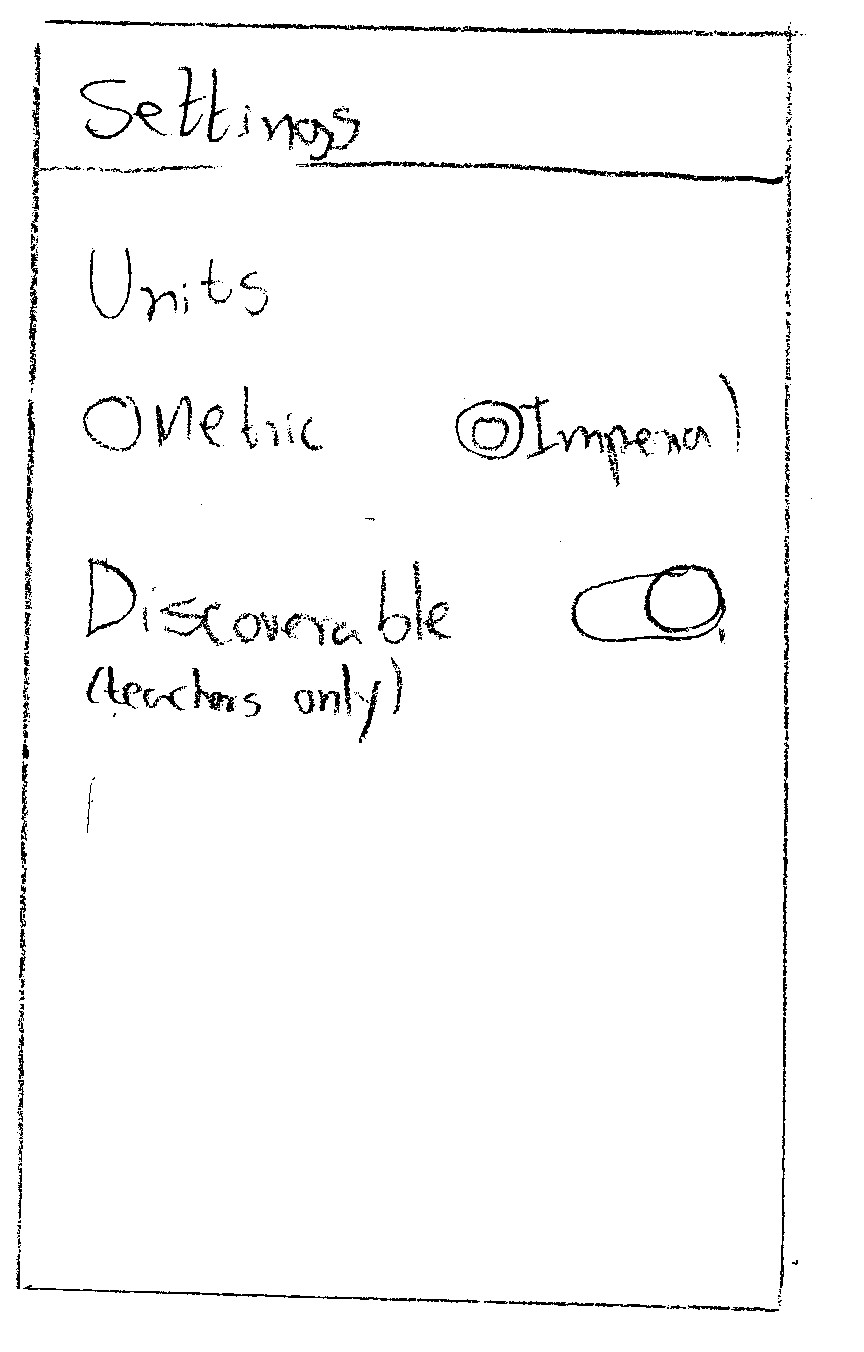 Settings
Units
Metric Imperial
Discoverable
(teachers only)